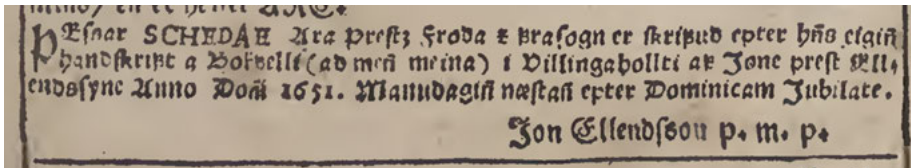 minn/ en ek heiter ARE.
ÞEssar SCHEDAE Ara Prestz Froda z Frasogn er skrifud epter hñs eigiñ
handskript a Bokvelli (ad meñ meina) i Villingahollti af Jone prest Ell,
endssyne Anno Doñi 1651. Manudagiñ næstañ epter Dominicam Jubilate.
Jon Ellendsson p. m. p.